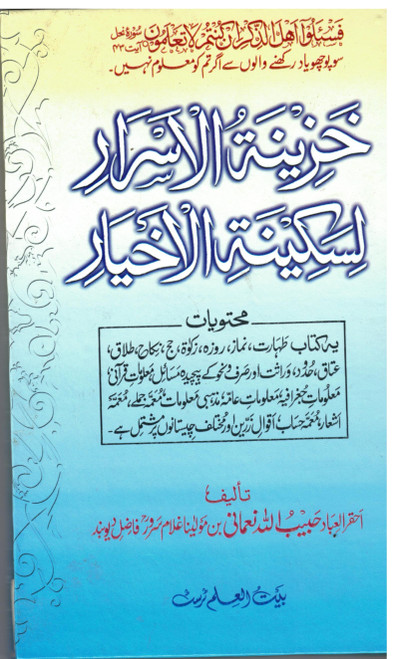 فَسْئَلُوْا اَهْلَ الذِّكْرِ اِنْ كُنْتُمْ لَا تَعْلَمُوْنَ سورۂ نحل آیت ۴۳
سو پوچھو یاد رکھنے والوں سے اگر تم کو معلوم نہیں۔
خَزِيْنَةُ الْاَسْرَارِ
لِسَكِيْنَةِ الْاَخْيَارِ
محتویات
یہ کتاب طہارت، نماز، روزہ، زکوٰۃ، حج، نکاح، طلاق،
عتاق، حُدُد، وراثت اور صرف و نحو کے پیچیدہ مسائل، معلوماتِ قرآنی،
معلُومات جغرافیہ، معلوماتِ عامہ، مذہبی معلومات، مُعمّہ جملے، مُعمّہ
اشعار، مُعمّہ حساب، اقوالِ زرّین اور مختلف چیستانوں پر مشتمل ہے۔
تألیف
احقر العباد حبیبُ اللہ نعمانی بن مولینا غلام سرور فاضل دیوبند
بیتُ العِلم ٹرسٹ